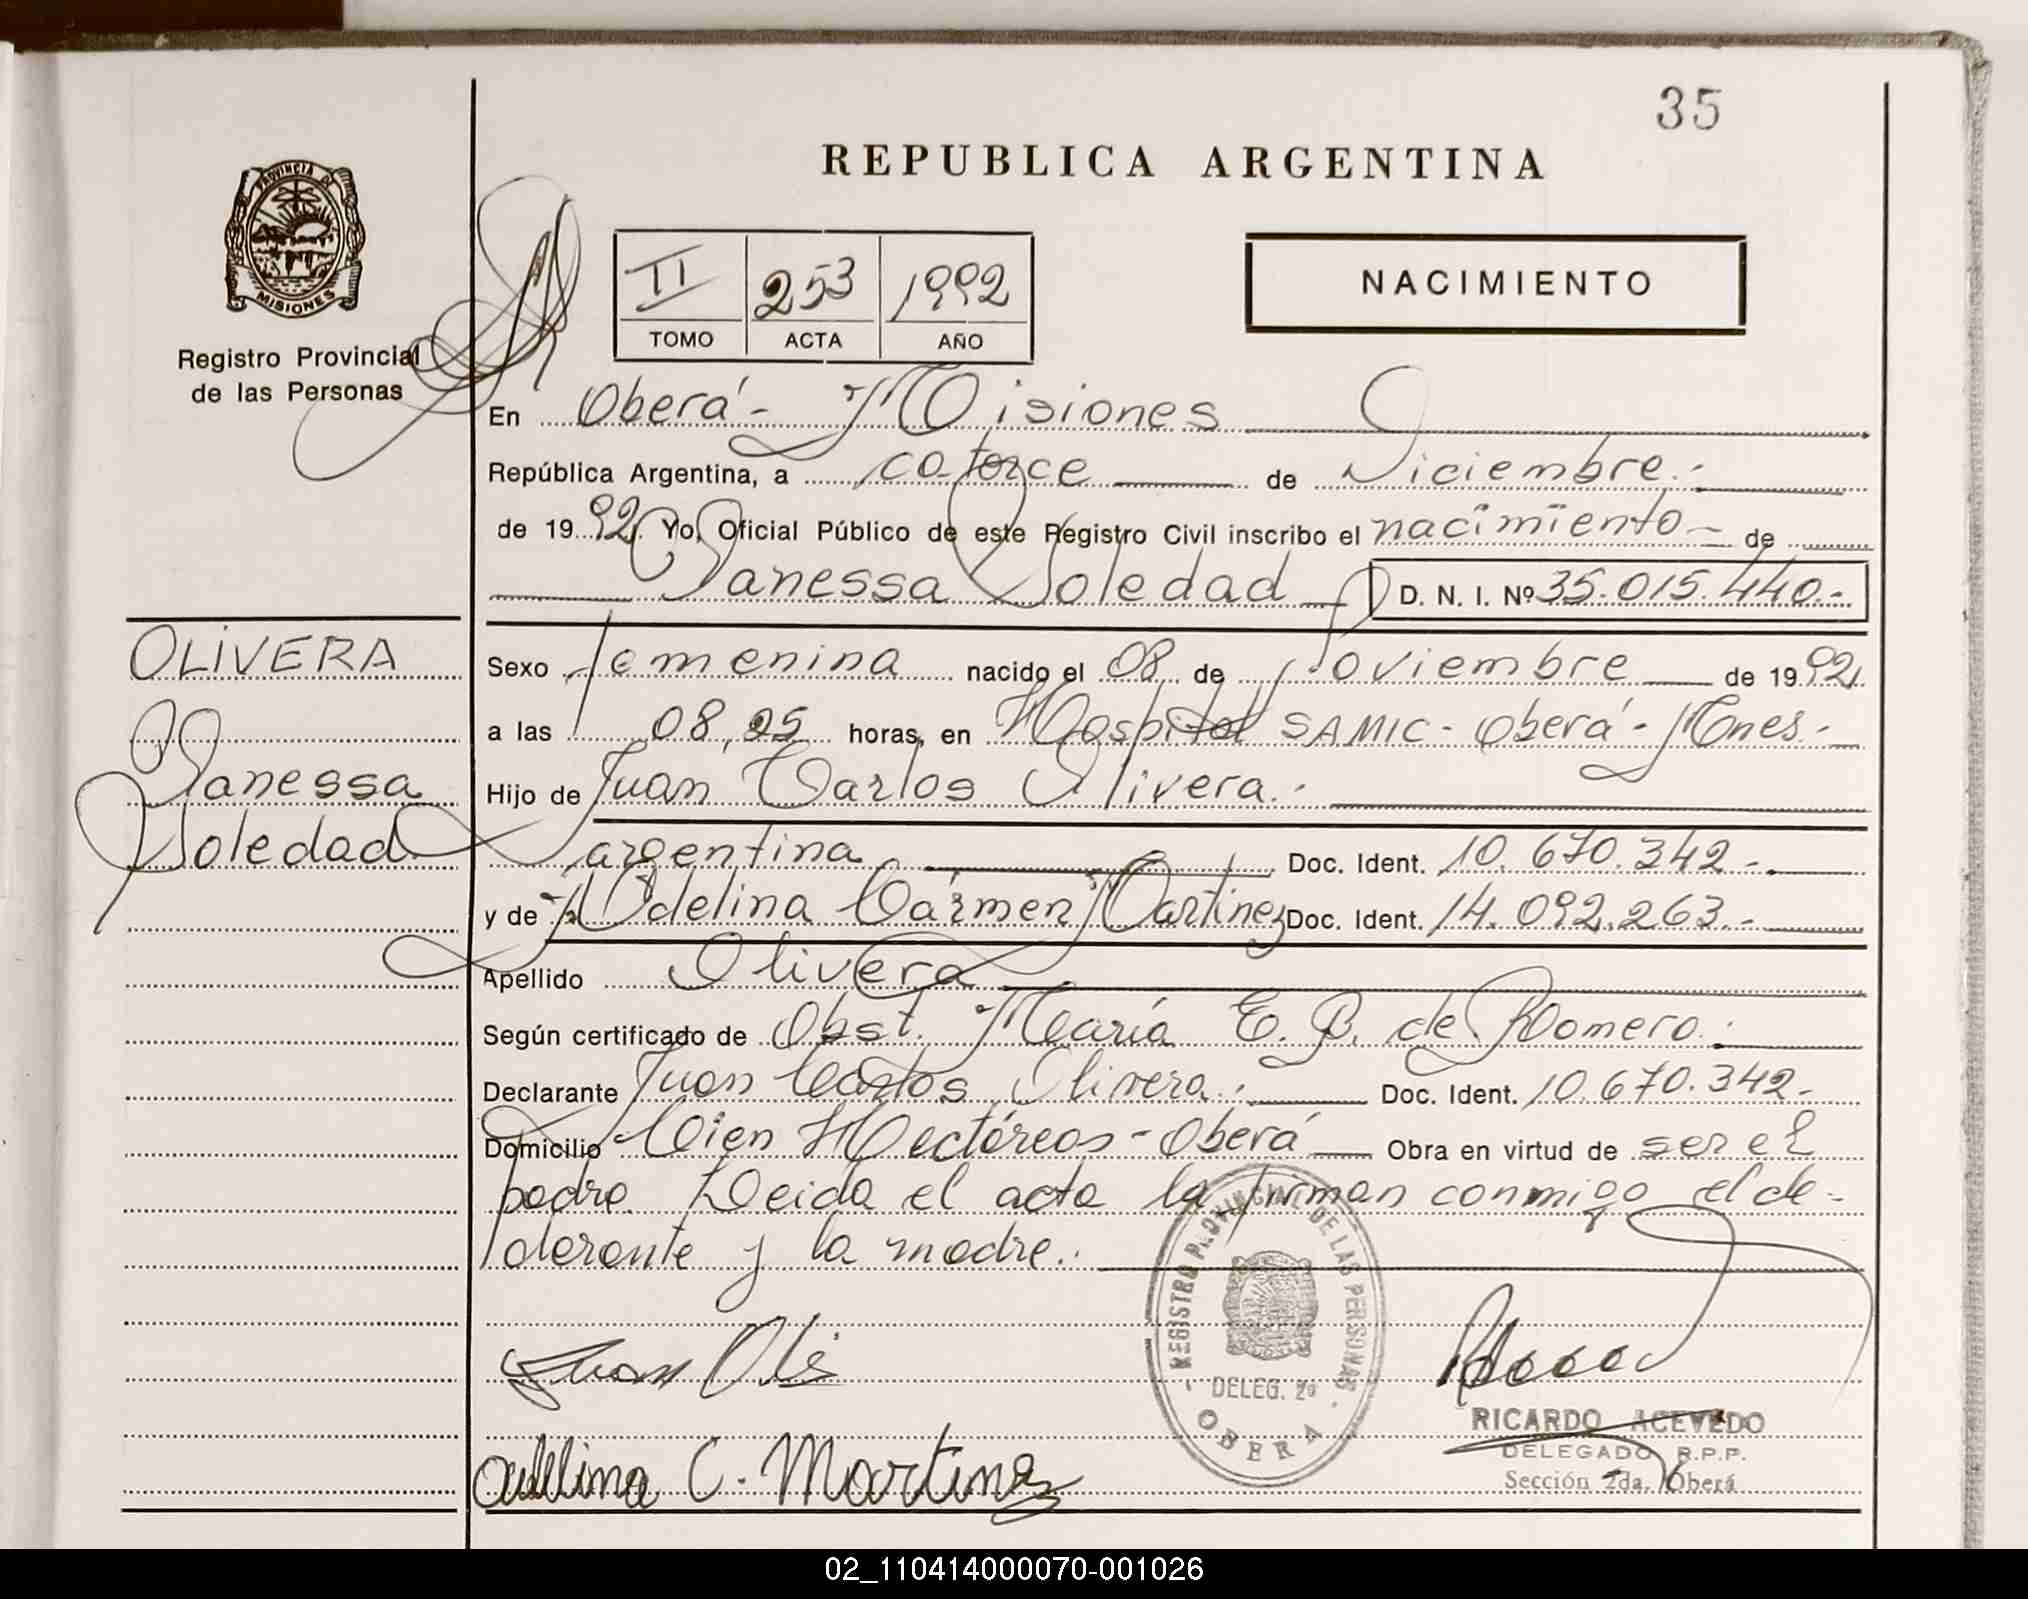 35
REPUBLICA ARGENTINA
PROVINCIA DE
MISIONES
Registro Provincial
de las Personas
II 253 1992
TOMO ACTA AÑO
NACIMIENTO
En Oberá - Misiones
República Argentina, a catorce de Diciembre.-
de 1992. Yo, Oficial Público de este Registro Civil inscribo el nacimiento - de
Vanessa Soledad D. N. I. Nº 35.015.440.-
OLIVERA
Vanessa
Soledad
Sexo femenina nacido el 08 de Noviembre de 1992
a las 08,25 horas, en Hospital SAMIC - Oberá - Mnes.-
Hijo de Juan Carlos Olivera.-
argentina Doc. Ident. 10.670.342.-
y de Adelina Carmen Martinez Doc. Ident. 14.092.263.-
Apellido Olivera
Según certificado de Obst. María E. B. de Romero.-
Declarante Juan Carlos Olivera.- Doc. Ident. 10.670.342.-
Domicilio Cien Hectáreas - Oberá Obra en virtud de ser el
padre. Leida el acta la firman conmigo el de-
clarante y la madre.-
REGISTRO PROVINCIAL DE LAS PERSONAS
DELEG. 2ª
OBERA
Juan Oli
Adelina C. Martinez
RICARDO ACEVEDO
DELEGADO R.P.P.
Sección 2da. Oberá
02_110414000070-001026